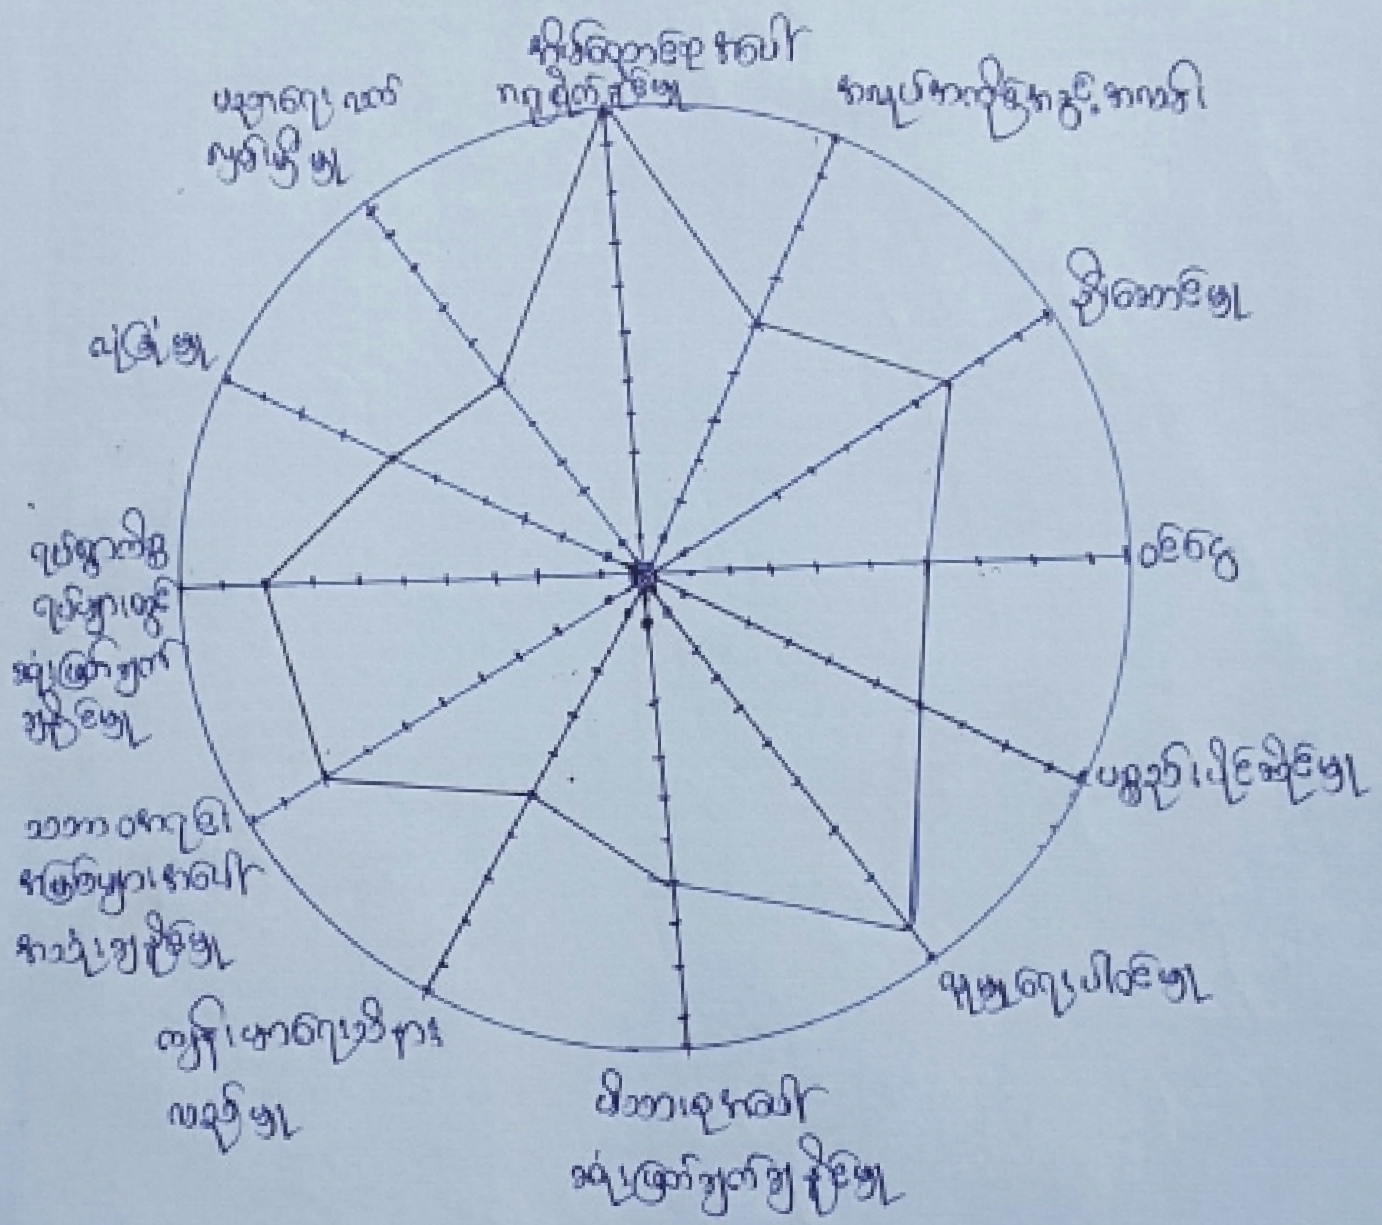 အိမ်ထောင်စု အပေါ်
ဂရုစိုက်နိုင်မှု
အလုပ်အကိုင်အခွင့်အလမ်း
ဦးဆောင်မှု
ဝင်ငွေ
ပစ္စည်းပိုင်ဆိုင်မှု
လူမှုရေးပါဝင်မှု
မိသားစုအပေါ်
ဆုံးဖြတ်ချက်ချနိုင်မှု
ကျန်းမာရေးသိနား
လည်မှု
သဘာဝအရင်း
အမြစ်များအပေါ်
အသုံးချနိုင်မှု
ရပ်ရွာကိစ္စ
ရပ်များတွင်
ဆုံးဖြတ်ချက်
ချနိုင်မှု
လုံခြုံမှု
ပညာရေးလက်
လှမ်းမှီမှု